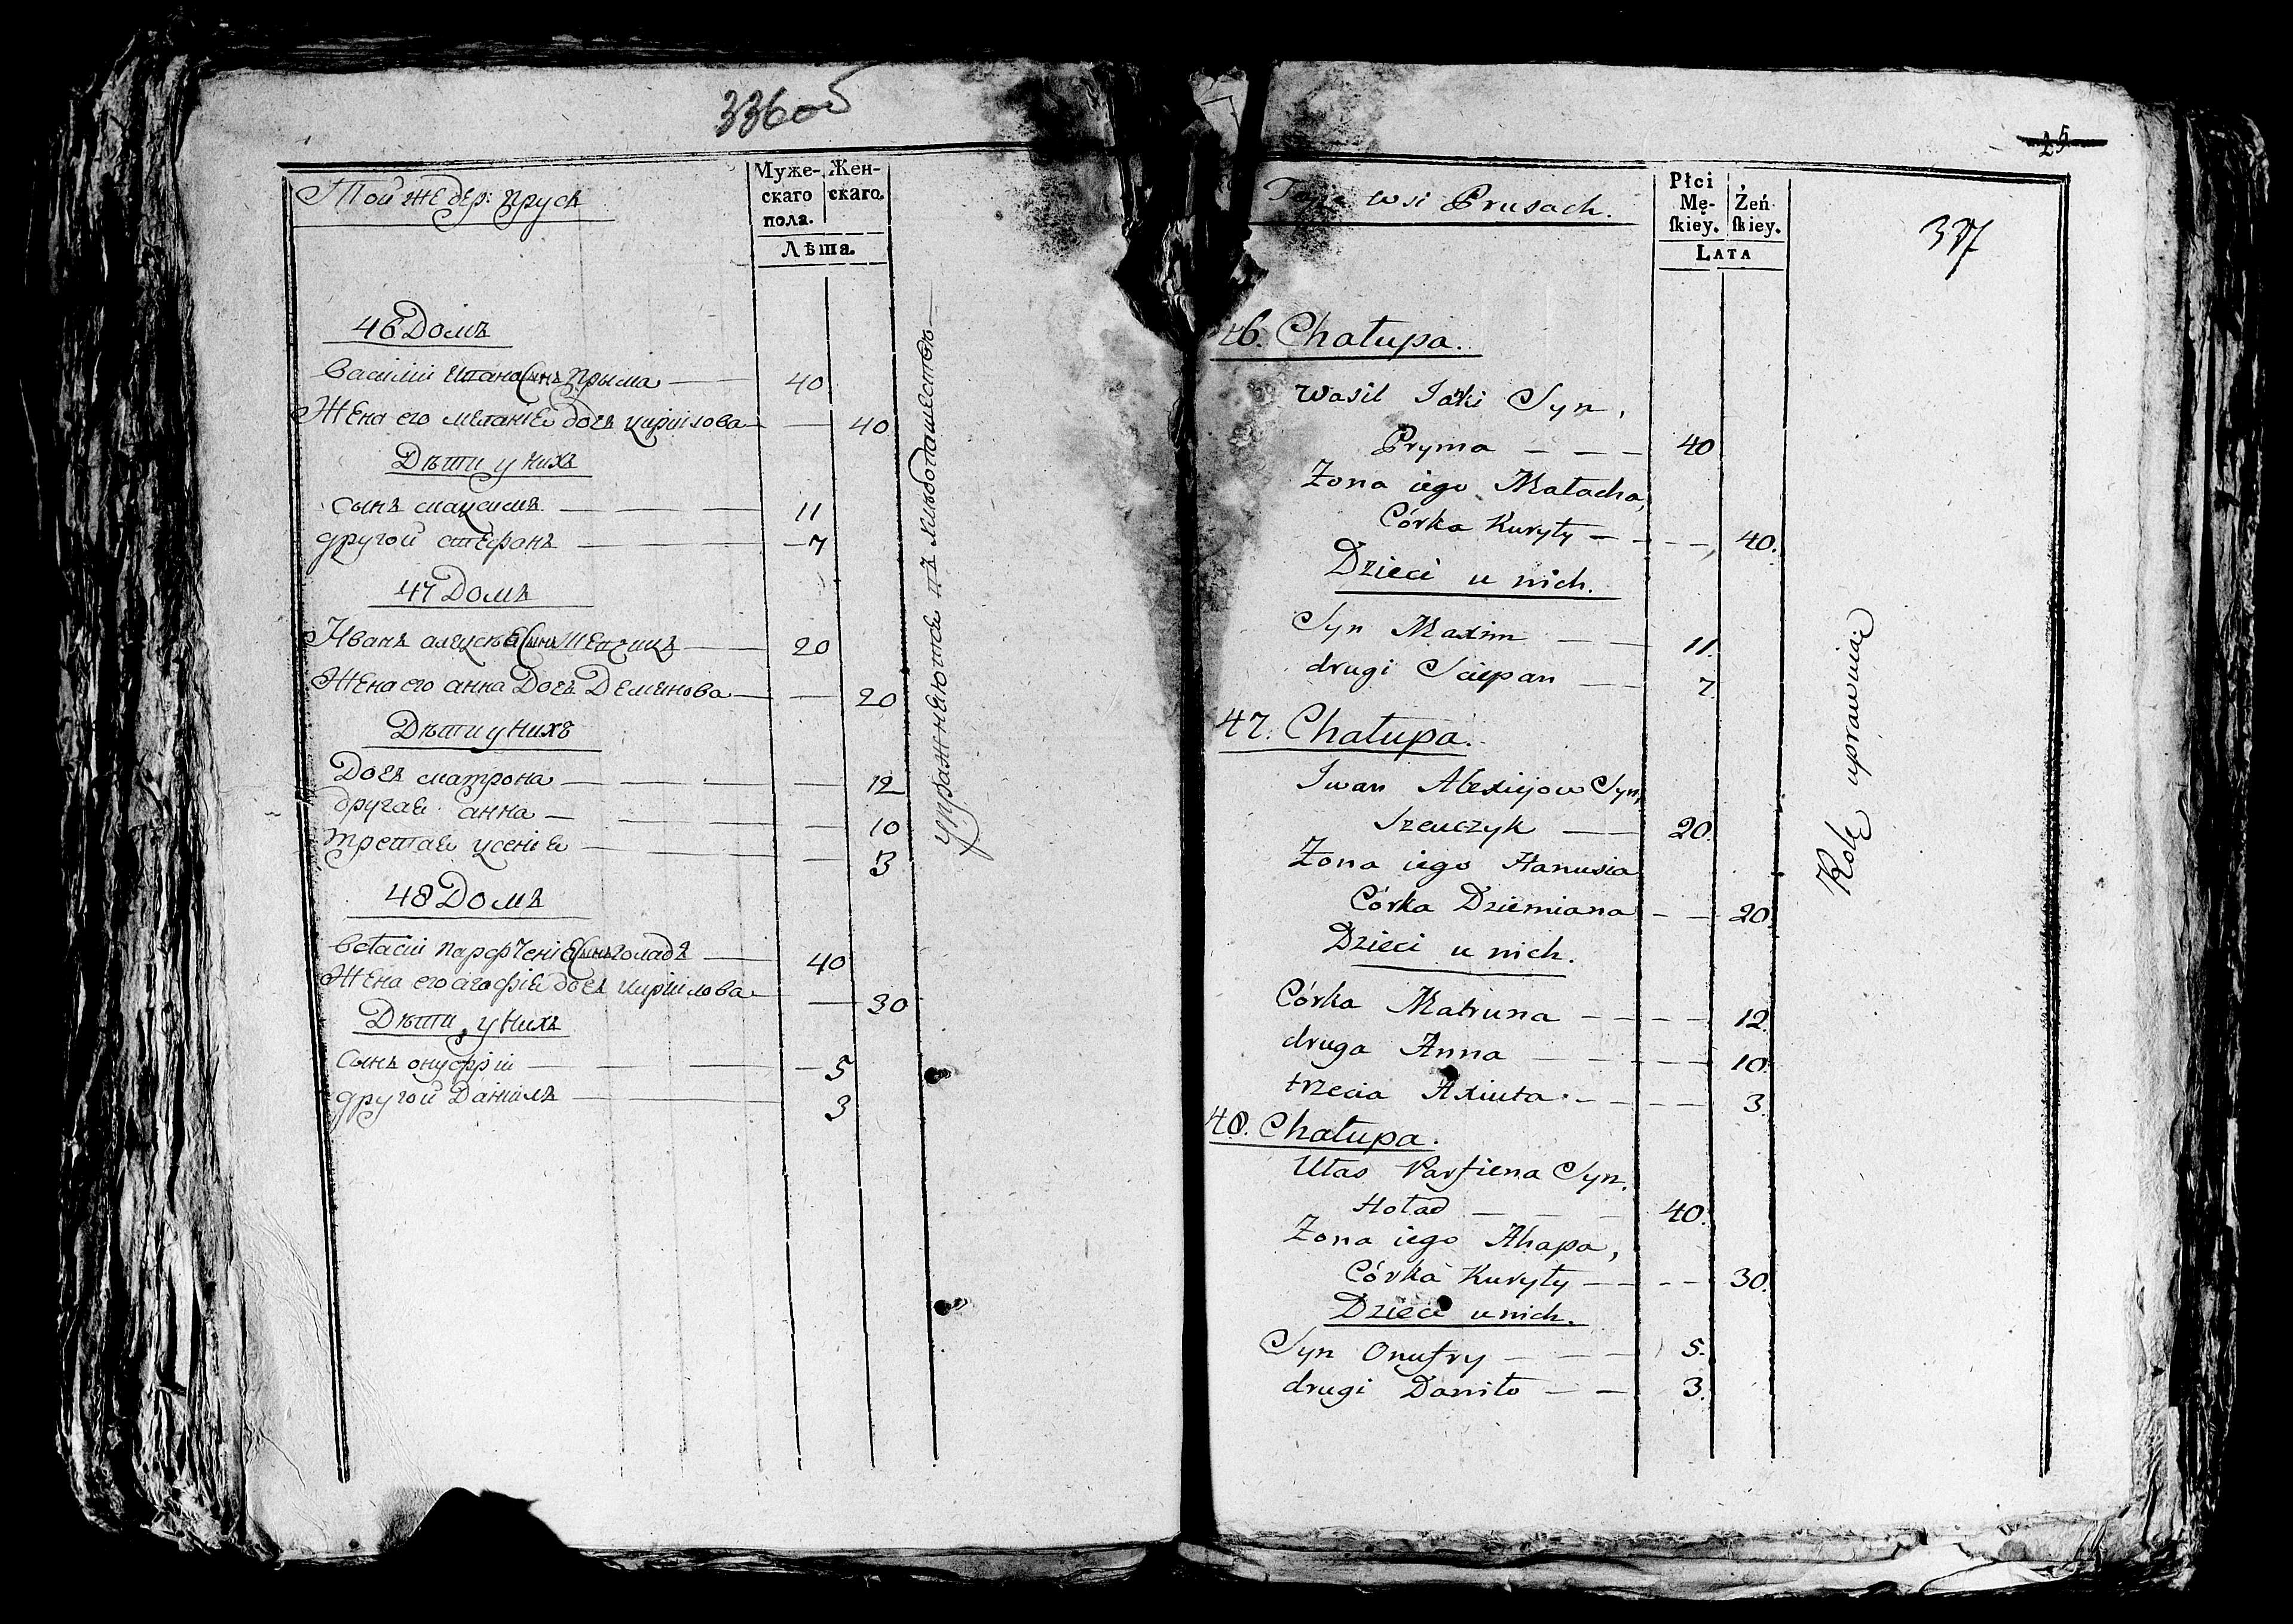 336 об
Той же дер: прусъ
Муже-
скаго
пола.
Жен-
скаго.
Лѣта.
46 Домъ
василій сынъ прыма 40
Жена его меланіе дочь кирилова 40
Дѣти у нихъ
сынъ максимъ 11
другой стефанъ 7
47 Домъ
Иванъ алексѣе сынъ шевчикъ 20
Жена его анна дочь деменова 20
Дѣти у нихъ
Дочь матрона 12
другае анна 10
третае ксеніе 3
48 Домъ
власій парфеніе сынъ голадъ 40
Жена его агафіе дочь кирилова 30
Дѣти у нихъ
сынъ онуфрій 5
другой Данило 3
упражнеютсе въ хлѣбопашествѣ
25
337
Teyże wsi Prusach.
Płci
Mę-
ſkiey.
Żeń
ſkiey.
LATA
46. Chałupa.
Wasil Jaśki Syn,
Pryma 40
Żona iego Małacha,
Córka Kuryły 40.
Dzieci u nich.
Syn Maxim 11.
drugi Sciepan 7.
47. Chałupa.
Iwan Alexiejow Syn,
Szewczyk 20.
Żona iego Hanusia
Córka Dziemiana 20.
Dzieci u nich.
Córka Matruna 12.
druga Anna 10.
trzecia Axiuta 3.
48. Chałupa.
Ułas Parfiena Syn.
Hoład 40.
Żona iego Ahapa,
Córka Kuryły 30.
Dzieci u nich.
Syn Onufry 5.
drugi Daniło 3.
Rolę uprawuią